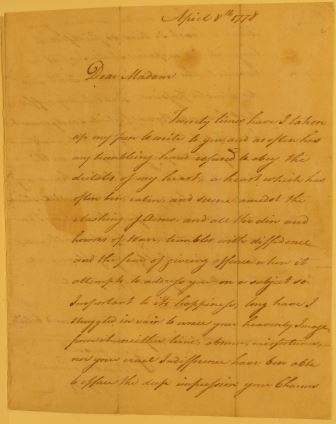 April 8th 1778
Dear Madam
Twenty times have I taken
up my pen to write to you and as often has
my trembling hand refused to obey the
dictates of my heart, a heart which has
often been calm and serene amidst the
clashing of Arms and all the din and
horrors of War, trembles with diffidence
and the fear of giving offence when it
attempts to address you on a subject so
Important to its happiness, long have I
struggled in vain to erase your heavenly Image
from it neither time, absence, misfortunes,
nor your cruel Indifference have been able
to efface the deep impression your Charms